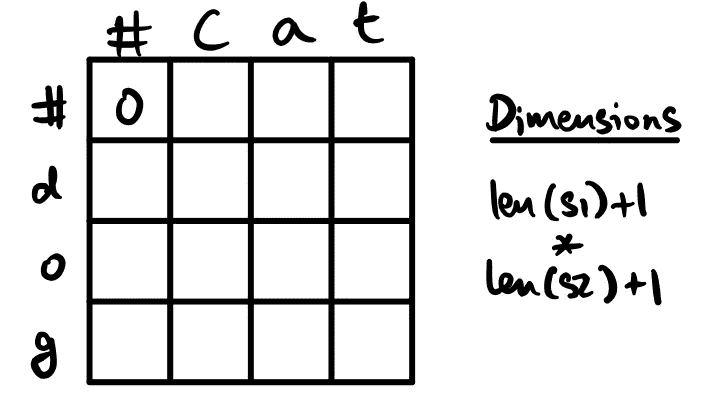 # C a t
# 0
d
o
g
Dimensions
len(s1)+1
*
len(s2)+1